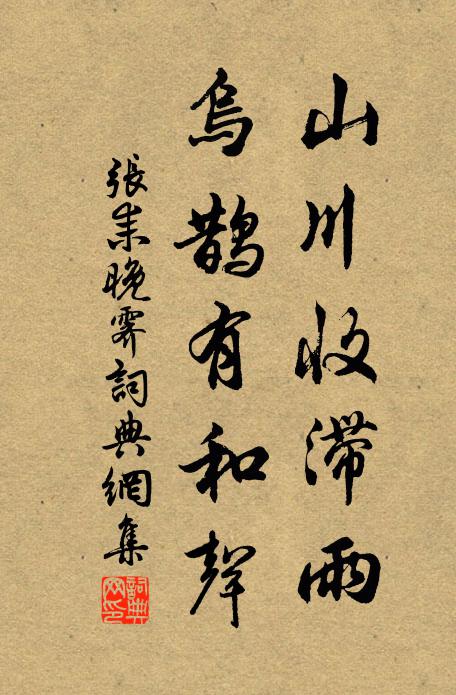 山川收滯雨
烏鵲有和聲
張耒晚霽詞典網集
詞典網印